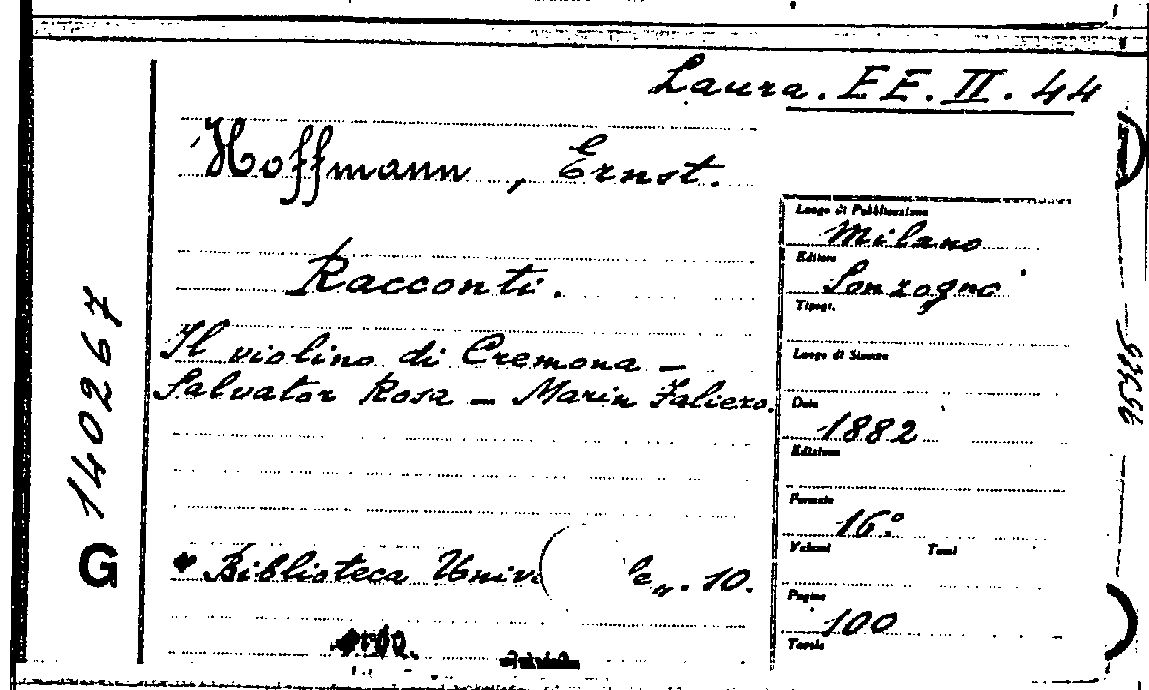 Laura. EE. II. 44
Hoffmann, Ernst.
Racconti.
Il violino di Cremona –
Salvator Rosa – Marin Faliero.
* Biblioteca Univ le n. 10.
G 140267
Luogo di Pubblicazione
Milano
Editore
Sonzogno
Tipogr.
Luogo di Stampa
Data
1882
Edizione
Formato
16º
Volumi Tomi
Pagine
100
Tavole